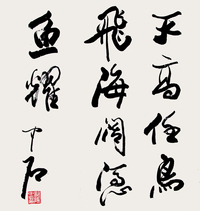 天高任鳥
飛海闊憑
魚躍
中石